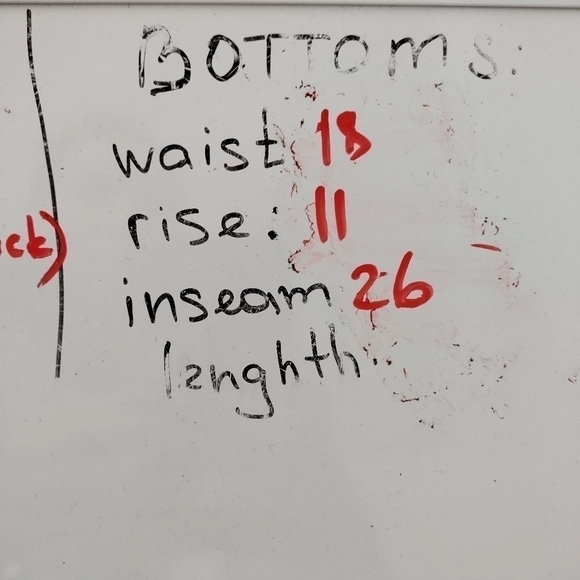 BOTTOMS:
waist: 18
rise: 11
ck)
inseam 26
lenghth: